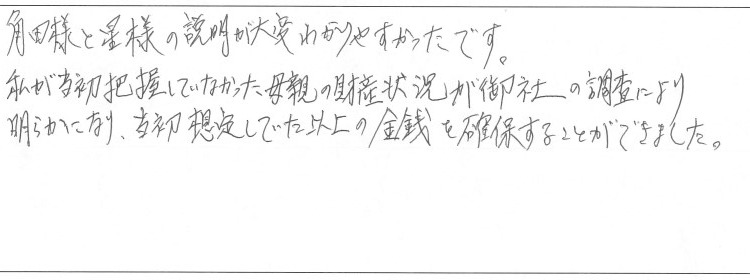 角田様と星様の説明が大変わかりやすかったです。
私が当初把握していなかった母親の財産状況が御社の調査により
明らかになり、当初想定していた以上の金銭を確保することができました。